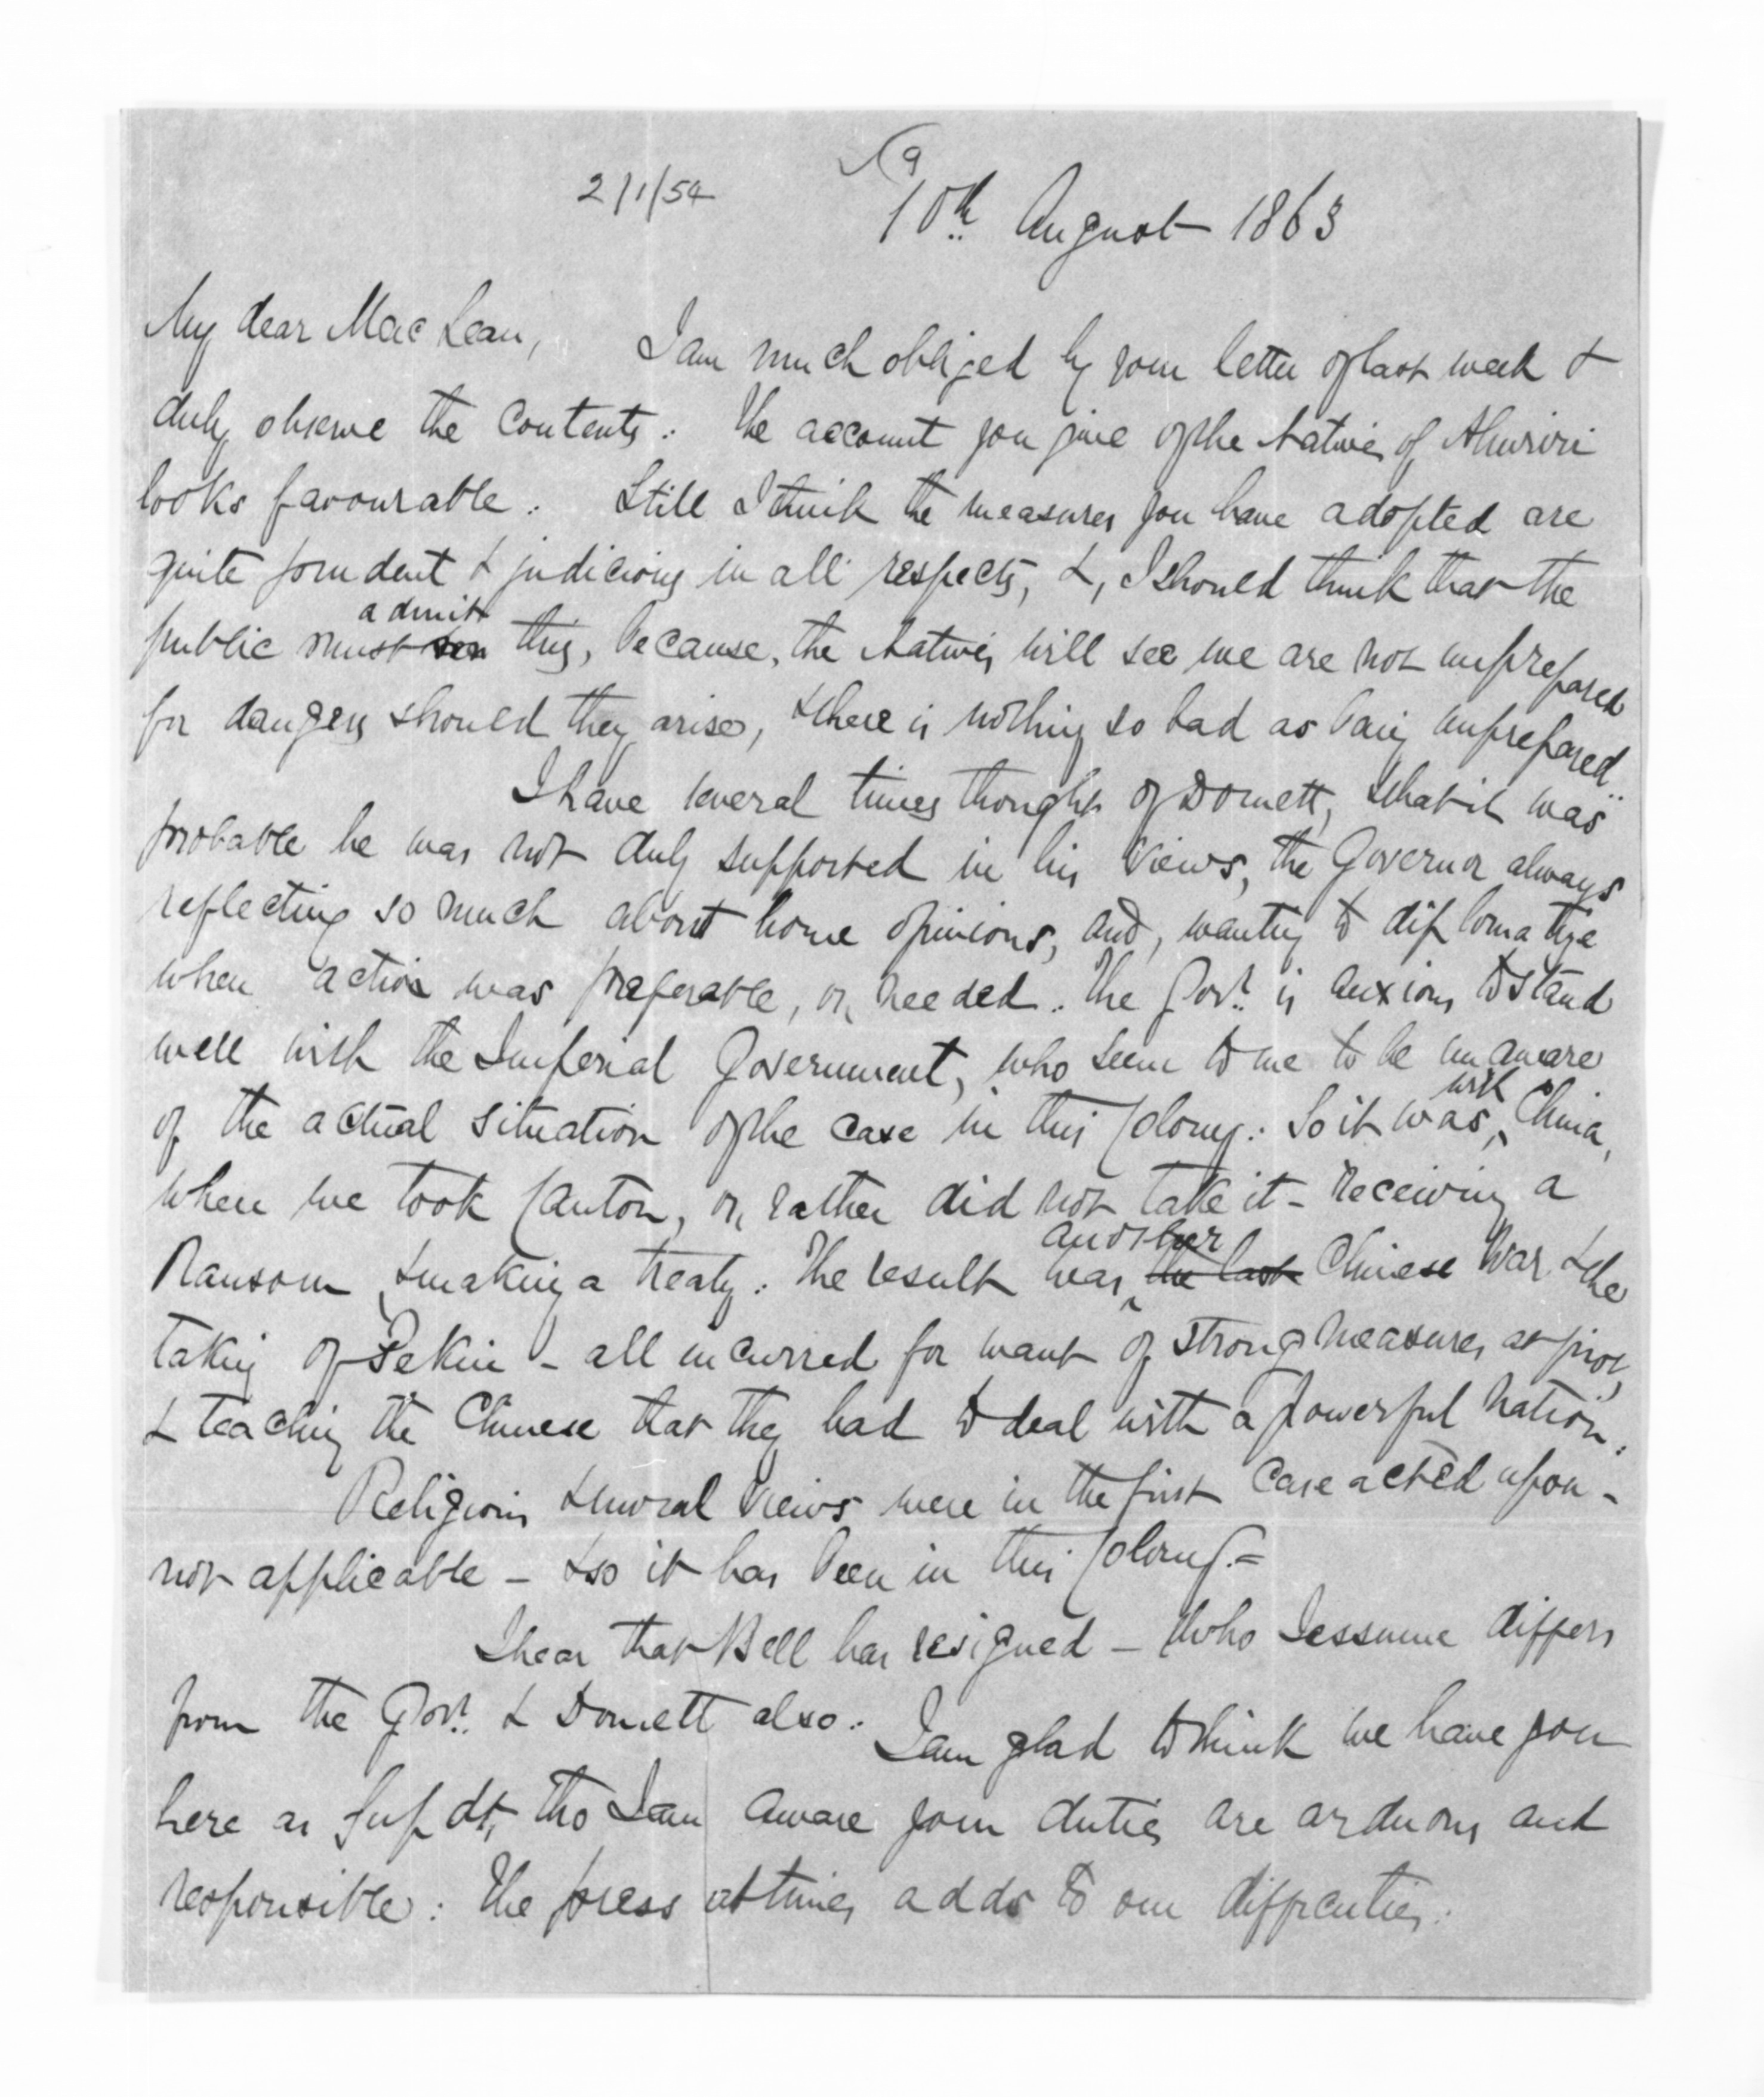 9
2/1/54
10th August 1863
My dear MacLean, I am much obliged by your letter of last week &
duly observe the contents. The account you give of the Natives of Ahuriri
looks favourable. Still I think the measures you have adopted are
quite prudent & judicious in all respects, &, I should think that the
admit
public must this, because, the Natives will see we are not unprepared
for dangers should they arise, & there is nothing so bad as being unprepared.
I have several times thought of Domett, & that it was
probable he was not duly supported in his views, the Governor always
reflecting so much about home opinions, and, wanting to diplomatize
when action was preferable, or, needed. The Govr. is anxious to stand
well with the Imperial Government, who seem to me to be unaware
of the actual situation of the case in this Colony. So it was, with China,
when we took Canton, or, rather did not take it - receiving a
Ransom, & making a treaty. The result was, another the last Chinese War & the
taking of Pekin - all incurred for want of strong measures at first,
& teaching the Chinese that they had to deal with a powerful Nation.
Religious & moral views were in the first case acted upon -
not applicable - & so it has been in this Colony. =
I hear that Bell has resigned - who I assume differs
from the Govr. & Domett also. I am glad to think we have you
here as Supdt, tho I am aware your duties are arduous and
responsible. The press at times adds to our difficulties.